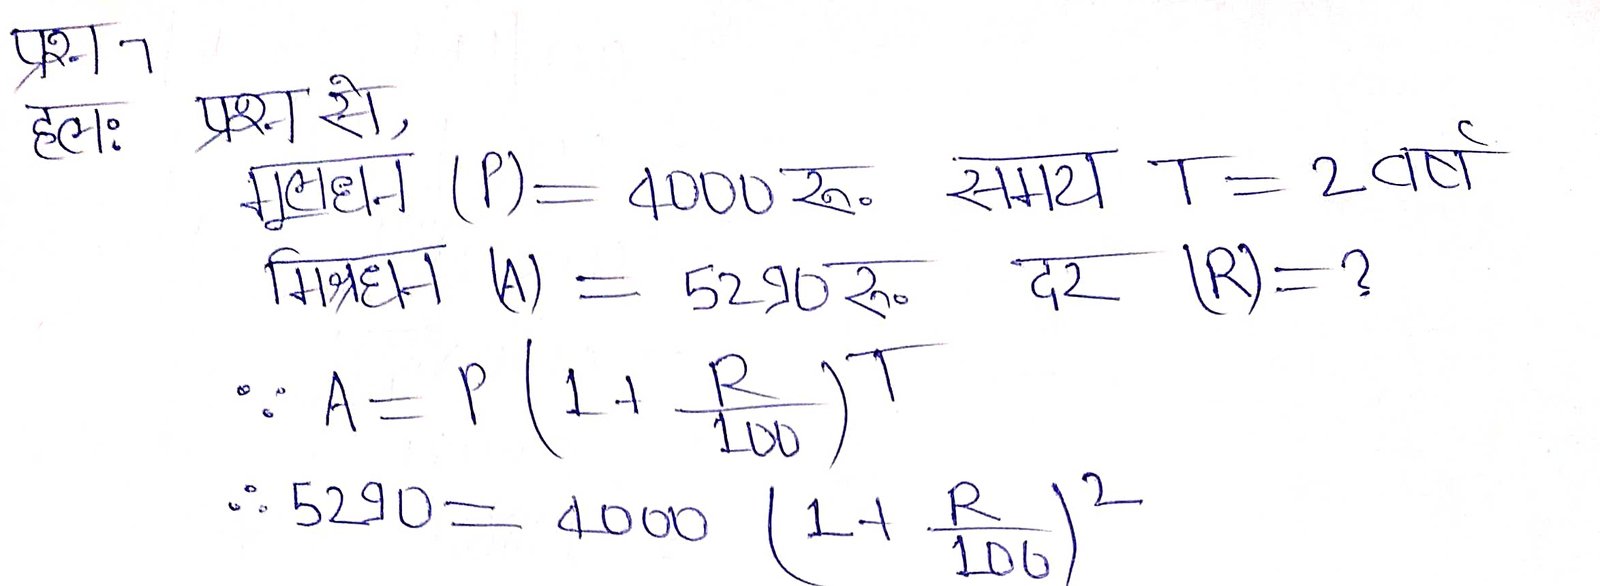 प्रश्न 7
हलः प्रश्न से,
मूलधन (P) = 4000 रू. समय T = 2 वर्ष
मिश्रधन (A) = 5290 रू. दर (R) = ?
∵ A = P (1 + R/100)^T
∴ 5290 = 4000 (1 + R/100)^2